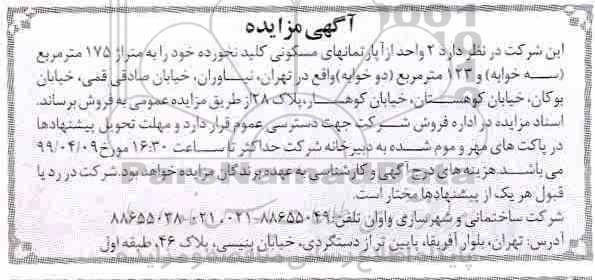 آگهی مزایده
این شرکت در نظر دارد ۲ واحد از آپارتمانهای مسکونی کلید نخورده خود را به متراژ ۱۷۵ مترمربع
(سه خوابه) و ۱۲۳ مترمربع (دو خوابه) واقع در تهران، نیاوران، خیابان صادقی قمی، خیابان
بوکان، خیابان کوهستان، خیابان کوهسار، پلاک ۲۸ از طریق مزایده عمومی به فروش برساند.
اسناد مزایده در اداره فروش شرکت جهت دسترسی عموم قرار دارد و مهلت تحویل پیشنهادها
در پاکت های مهر و موم شده به دبیرخانه شرکت حداکثر تا ساعت ۱۶:۳۰ مورخ ۹۹/۰۴/۰۹
می باشد. هزینه های درج آگهی و کارشناسی به عهده برندگان مزایده خواهد بود. شرکت در رد یا
قبول هر یک از پیشنهادها مختار است.
شرکت ساختمانی و شهرسازی واوان تلفن: ۸۸۶۵۵۰۴۹-۰۲۱ ۸۸۶۵۵۰۳۸-۰۲۱
آدرس: تهران، بلوار آفریقا، پایین تر از دستگردی، خیابان بنیسی، پلاک ۴۶، طبقه اول